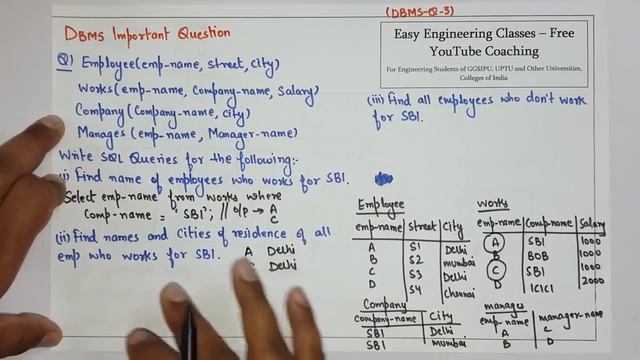 (DBMS-Q-3)
DBMS Important Question
Easy Engineering Classes – Free
YouTube Coaching
For Engineering Students of GGSIPU, UPTU and Other Universities,
Colleges of India
Q) Employee(emp-name, street, city)
Works(emp-name, Company-name, Salary)
Company(Company-name, city)
Manages (emp-name, Manager-name)
Write SQL Queries for the following:-
(i) Find name of employees who works for SBI.
Select emp-name from works where
comp-name = 'SBI'; // o/p → A
C
(ii) Find names and cities of residence of all
emp who works for SBI. A Delhi
Delhi
(iii) Find all employees who don't work
for SBI.
Employee
emp-name street city
A S1 Delhi
B S2 mumbai
C S3 Delhi
D S4 Chennai
Works
emp-name comp-name Salary
A SBI 1000
B BOB 1000
C SBI 1000
D ICICI 2000
Company
company-name City
SBI Delhi
SBI mumbai
manages
emp-name manager-name
A C
B D